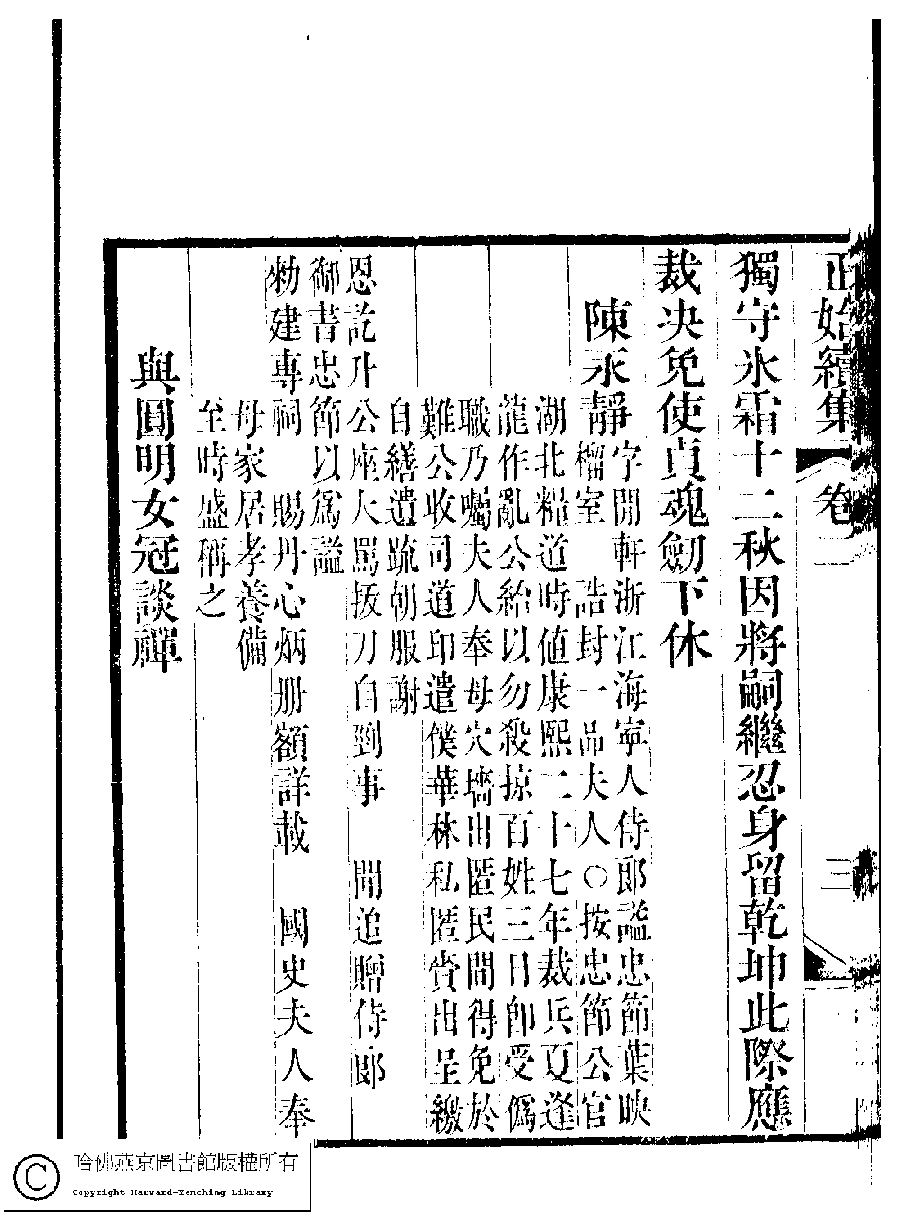 正始續集 卷二 三
獨守氷霜十二秋因將嗣繼忍身留乾坤此際應
裁决免使貞魂劒下休
陳永靜
字閒軒浙江海寧人侍郎謚忠節葉映
榴室 誥封一品夫人○按忠節公官
湖北糧道時値康熙二十七年裁兵夏逢
龍作亂公紿以勿殺掠百姓三日卽受僞
職乃囑夫人奉母穴墻出匿民間得免於
難公收司道印遣僕華林私匿賫出呈繳
自繕遺疏朝服謝
恩訖升公座大罵拔刀自剄事 聞追贈侍郎
御書忠節以爲謚
勑建專祠 賜丹心炳册額詳載 國史夫人奉
母家居孝養備
至時盛稱之
與圓明女冠談禪
哈佛燕京圖書館版權所有
Copyright Harvard-Yenching Library